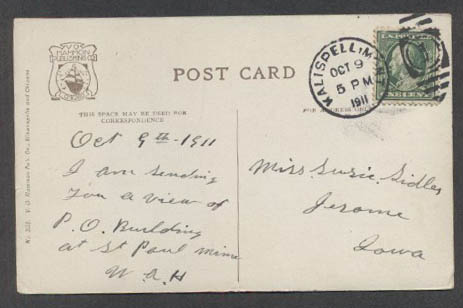 V.O. HAMMON
PUBLISHING CO.
POST CARD
KALISPELL, MONT.
OCT 9
5 PM
1911
U.S. POSTAGE
ONE CENT
THIS SPACE MAY BE USED FOR
CORRESPONDENCE
FOR ADDRESS ONLY
Oct 9th - 1911
I am sending
You a view of
P.O. Building
at St Paul Minn
W. A. H
Miss Susie Sidles
Jerome
Iowa
V. O. Hammon Pub. Co., Minneapolis and Chicago